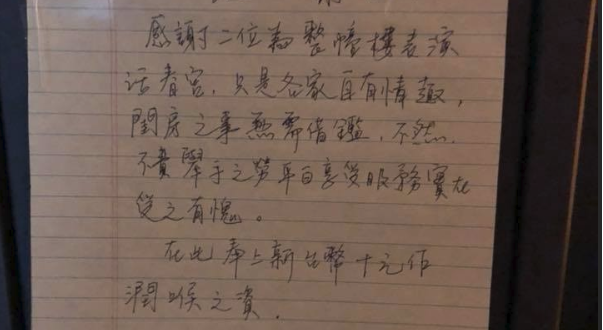 感謝二位為整幢樓表演
活春宮，只是各家自有情趣，
閨房之事無需借鑑，不然
不費舉手之勞平白享受服務實在
受之有愧。
在此奉上新台幣十元作
潤喉之資．